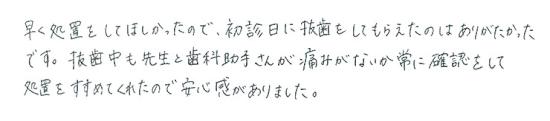 早く処置をしてほしかったので、初診日に抜歯をしてもらえたのはありがたかった
です。抜歯中も先生と歯科助手さんが痛みがないか常に確認をして
処置をすすめてくれたので安心感がありました。